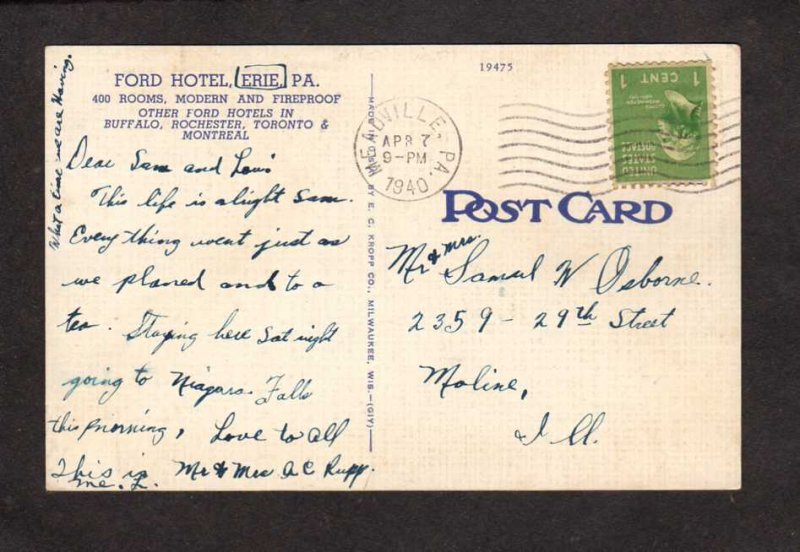 What a time we are Having.
FORD HOTEL, ERIE, PA.
400 ROOMS, MODERN AND FIREPROOF
OTHER FORD HOTELS IN
BUFFALO, ROCHESTER, TORONTO &
MONTREAL
Dear Sam and Lou's
This life is alright Sam.
Every thing went just as
we planed and to a
tea. Staying here Sat night
going to Niagara Falls
this morning, Love to all
This is Mr & Mrs A C Rupp.
me. L.
MADE IN U.S.A. BY E. C. KROPP CO., MILWAUKEE, WIS.-(GIY)
19475
MEADVILLE, PA.
APR 7
9-PM
1940
1 CENT 1
UNITED
STATES
POSTAGE
POST CARD
Mr & Mrs. Samuel W Osborne.
2359-29th Street
Moline,
Ill.